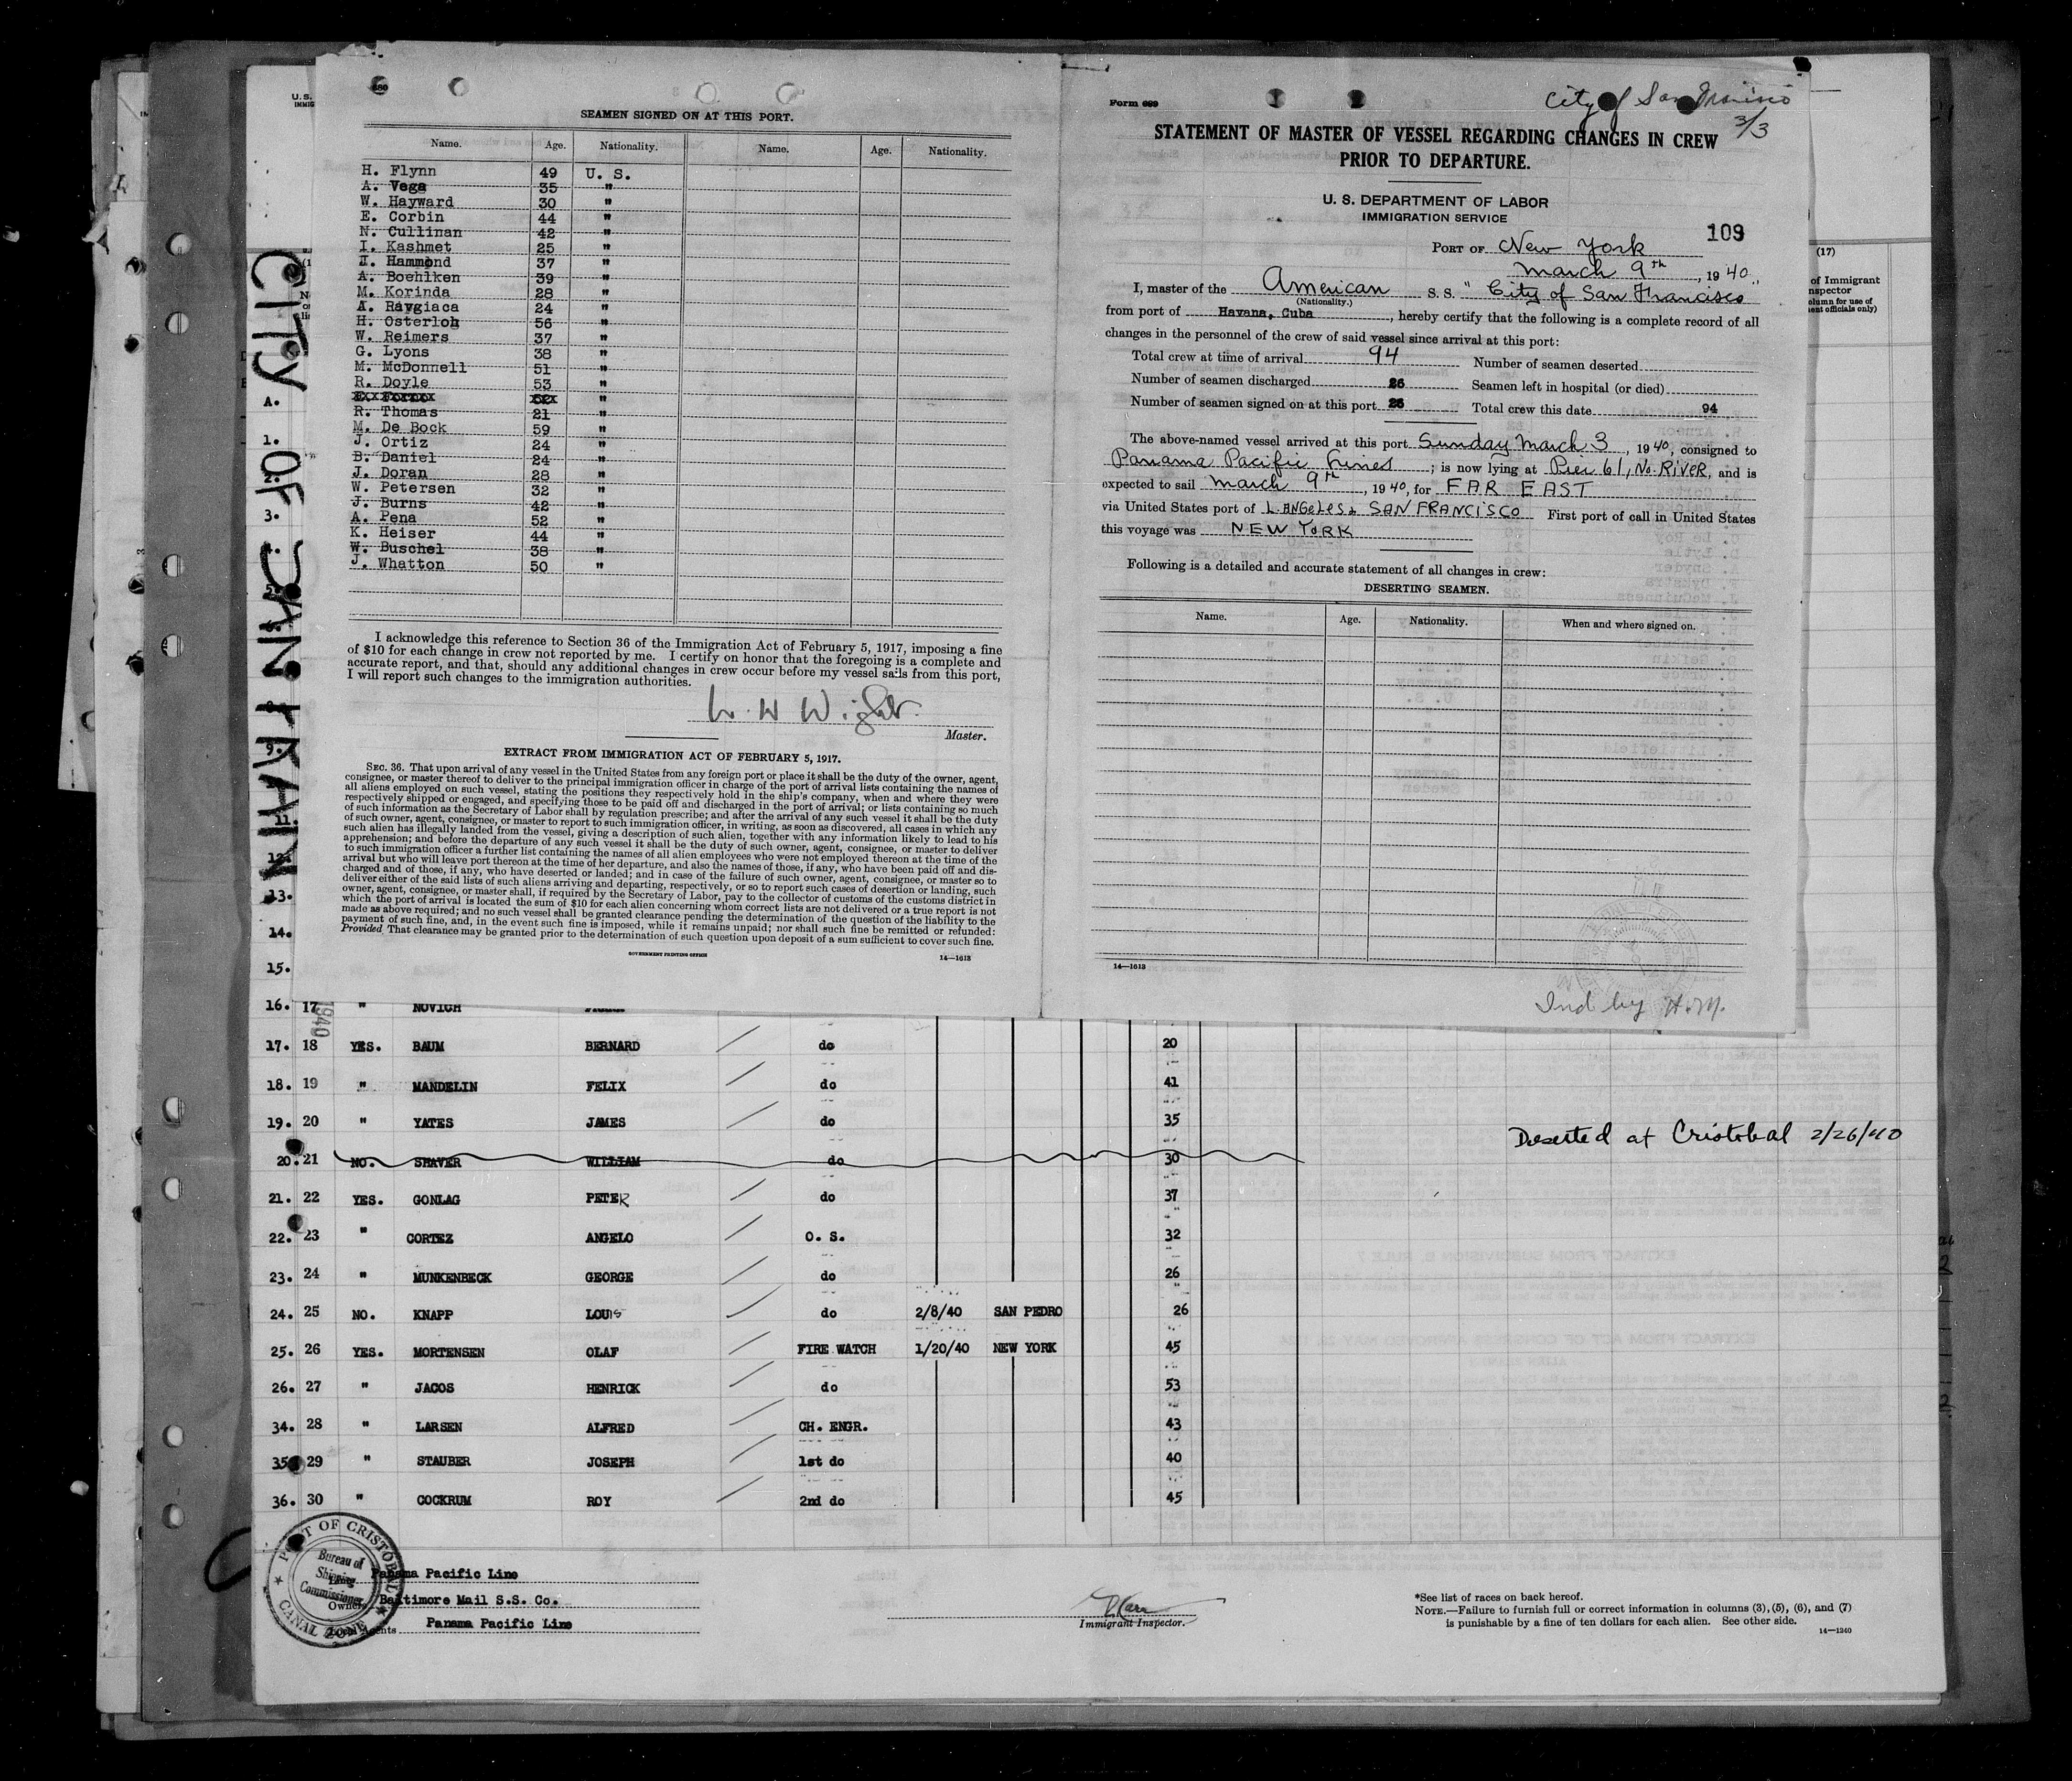 SEAMEN SIGNED ON AT THIS PORT.
Name. Age. Nationality. Name. Age. Nationality.
H. Flynn 49 U. S.
A. Vega 35 "
W. Hayward 30 "
E. Corbin 44 "
N. Cullinan 42 "
I. Kashmet 25 "
I. Hammond 37 "
A. Boehlken 39 "
M. Korinda 28 "
A. Raygiaca 24 "
H. Osterloh 56 "
W. Reimers 37 "
G. Lyons 38 "
M. McDonnell 51 "
R. Doyle 53 "
"
R. Thomas 21 "
M. De Bock 59 "
J. Ortiz 24 "
B. Daniel 24 "
J. Doran 28 "
W. Petersen 32 "
J. Burns 42 "
A. Pena 52 "
K. Heiser 44 "
W. Buschel 38 "
J. Whatton 50 "
I acknowledge this reference to Section 36 of the Immigration Act of February 5, 1917, imposing a fine
of $10 for each change in crew not reported by me. I certify on honor that the foregoing is a complete and
accurate report, and that, should any additional changes in crew occur before my vessel sails from this port,
I will report such changes to the immigration authorities.
Master.
EXTRACT FROM IMMIGRATION ACT OF FEBRUARY 5, 1917.
SEC. 36. That upon arrival of any vessel in the United States from any foreign port or place it shall be the duty of the owner, agent,
consignee, or master thereof to deliver to the principal immigration officer in charge of the port of arrival lists containing the names of
all aliens employed on such vessel, stating the positions they respectively hold in the ship's company, when and where they were
respectively shipped or engaged, and specifying those to be paid off and discharged in the port of arrival; or lists containing so much
of such information as the Secretary of Labor shall by regulation prescribe; and after the arrival of any such vessel it shall be the duty
of such owner, agent, consignee, or master to report to such immigration officer, in writing, as soon as discovered, all cases in which any
such alien has illegally landed from the vessel, giving a description of such alien, together with any information likely to lead to his
apprehension; and before the departure of any such vessel it shall be the duty of such owner, agent, consignee, or master to deliver
to such immigration officer a further list containing the names of all alien employees who were not employed thereon at the time of the
arrival but who will leave port thereon at the time of her departure, and also the names of those, if any, who have been paid off and dis-
charged and of those, if any, who have deserted or landed; and in case of the failure of such owner, agent, consignee, or master so to
deliver either of the said lists of such aliens arriving and departing, respectively, or so to report such cases of desertion or landing, such
owner, agent, consignee, or master shall, if required by the Secretary of Labor, pay to the collector of customs of the customs district in
which the port of arrival is located the sum of $10 for each alien concerning whom correct lists are not delivered or a true report is not
made as above required; and no such vessel shall be granted clearance pending the determination of the question of the liability to the
payment of such fine, and, in the event such fine is imposed, while it remains unpaid; nor shall such fine be remitted or refunded:
Provided That clearance may be granted prior to the determination of such question upon deposit of a sum sufficient to cover such fine.
GOVERNMENT PRINTING OFFICE 14—1613
Form 689
City of San Francisco
3/3
STATEMENT OF MASTER OF VESSEL REGARDING CHANGES IN CREW
PRIOR TO DEPARTURE.
U. S. DEPARTMENT OF LABOR
IMMIGRATION SERVICE
109
PORT OF New York
March 9th, 1940
I, master of the American S. S. "City of San Francisco"
(Nationality.)
from port of Havana, Cuba, hereby certify that the following is a complete record of all
changes in the personnel of the crew of said vessel since arrival at this port:
Total crew at time of arrival 94 Number of seamen deserted
Number of seamen discharged 26 Seamen left in hospital (or died)
Number of seamen signed on at this port 26 Total crew this date 94
The above-named vessel arrived at this port Sunday March 3, 1940, consigned to
Panama Pacific Lines; is now lying at Pier 61, No. RIVER, and is
expected to sail March 9th, 1940, for FAR EAST
via United States port of L. ANGELES & SAN FRANCISCO First port of call in United States
this voyage was NEW YORK
Following is a detailed and accurate statement of all changes in crew:
DESERTING SEAMEN.
Name. Age. Nationality. When and where signed on.
14—1613
Ind by H.M.
CITY OF SAN FRAN
(17)
of Immigrant
nspector
olumn for use of
ent officials only)
U. S.
A.
1.
2.
3.
9.
11.
12.
13.
14.
15.
16. 17 " NOVICH
1940
17. 18 YES. BAUM BERNARD do 20
18. 19 " MANDELIN FELIX do 41
19. 20 " YATES JAMES do 35
Deserted at Cristobal 2/26/40
20. 21 NO. SHAVER WILLIAM do 30
21. 22 YES. GONLAG PETER do 37
22. 23 " CORTEZ ANGELO O. S. 32
23. 24 " MUNKENBECK GEORGE do 26
24. 25 NO. KNAPP LOUIS do 2/8/40 SAN PEDRO 26
25. 26 YES. MORTENSEN OLAF FIRE WATCH 1/20/40 NEW YORK 45
26. 27 " JACOS HENRICK do 53
34. 28 " LARSEN ALFRED CH. ENGR. 43
35. 29 " STAUBER JOSEPH 1st do 40
36. 30 " COCKRUM ROY 2nd do 45
PORT OF CRISTOBAL
Bureau of
Shipping
Commissioner
CANAL ZONE
Panama Pacific Line
Owners Baltimore Mail S.S. Co.
Local Agents Panama Pacific Line
Immigrant Inspector.
*See list of races on back hereof.
NOTE.—Failure to furnish full or correct information in columns (3), (5), (6), and (7)
is punishable by a fine of ten dollars for each alien. See other side.
14—1240